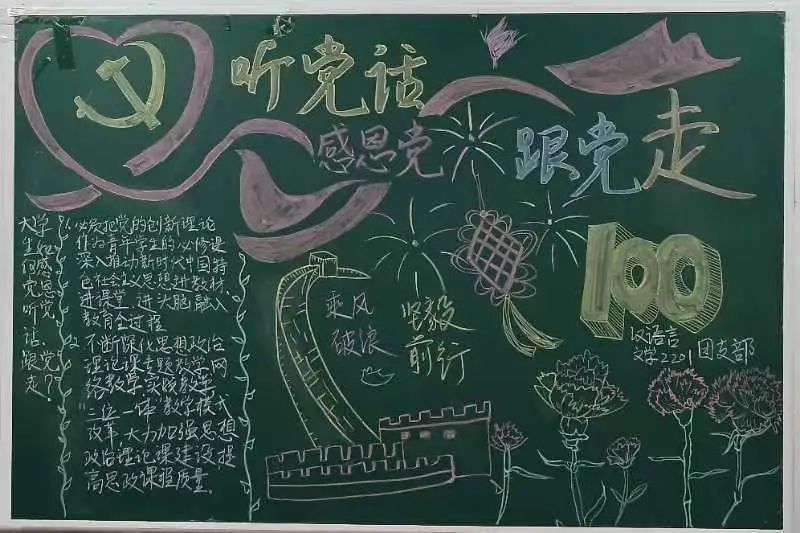 听党话
感恩党
跟党走
100
汉语言
文学2201团支部
乘风
破浪
坚毅
前行
大学
生如
何感
党恩
听党
话、
跟党
走?
1.必须把党的创新理论
作为青年学生的必修课
深入推动新时代中国特
色社会主义思想进教材
进课堂 进头脑,融入
教育全过程
2.不断深化思想政治
理论课专题教学网
络教学实践教学
"三位一体"教学模式
改革,大力加强思想
政治理论课建设提
高思政课程质量。